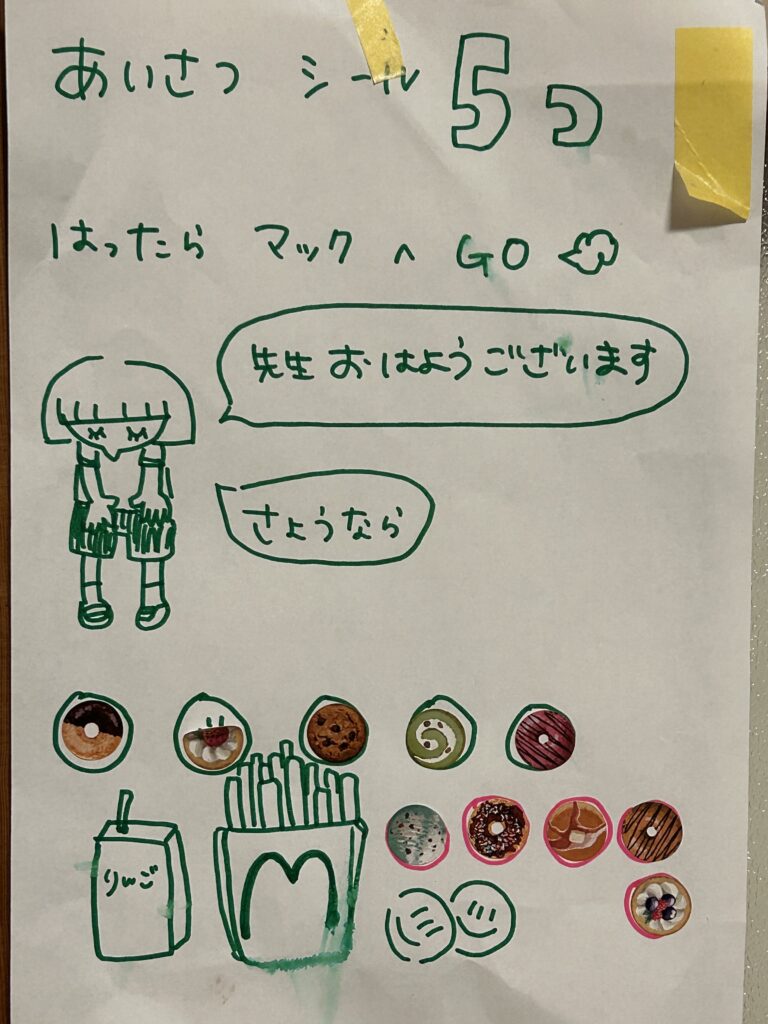 あいさつ シール 5コ
はったら マック へ GO
先生 おはようございます
さようなら
りんご
M